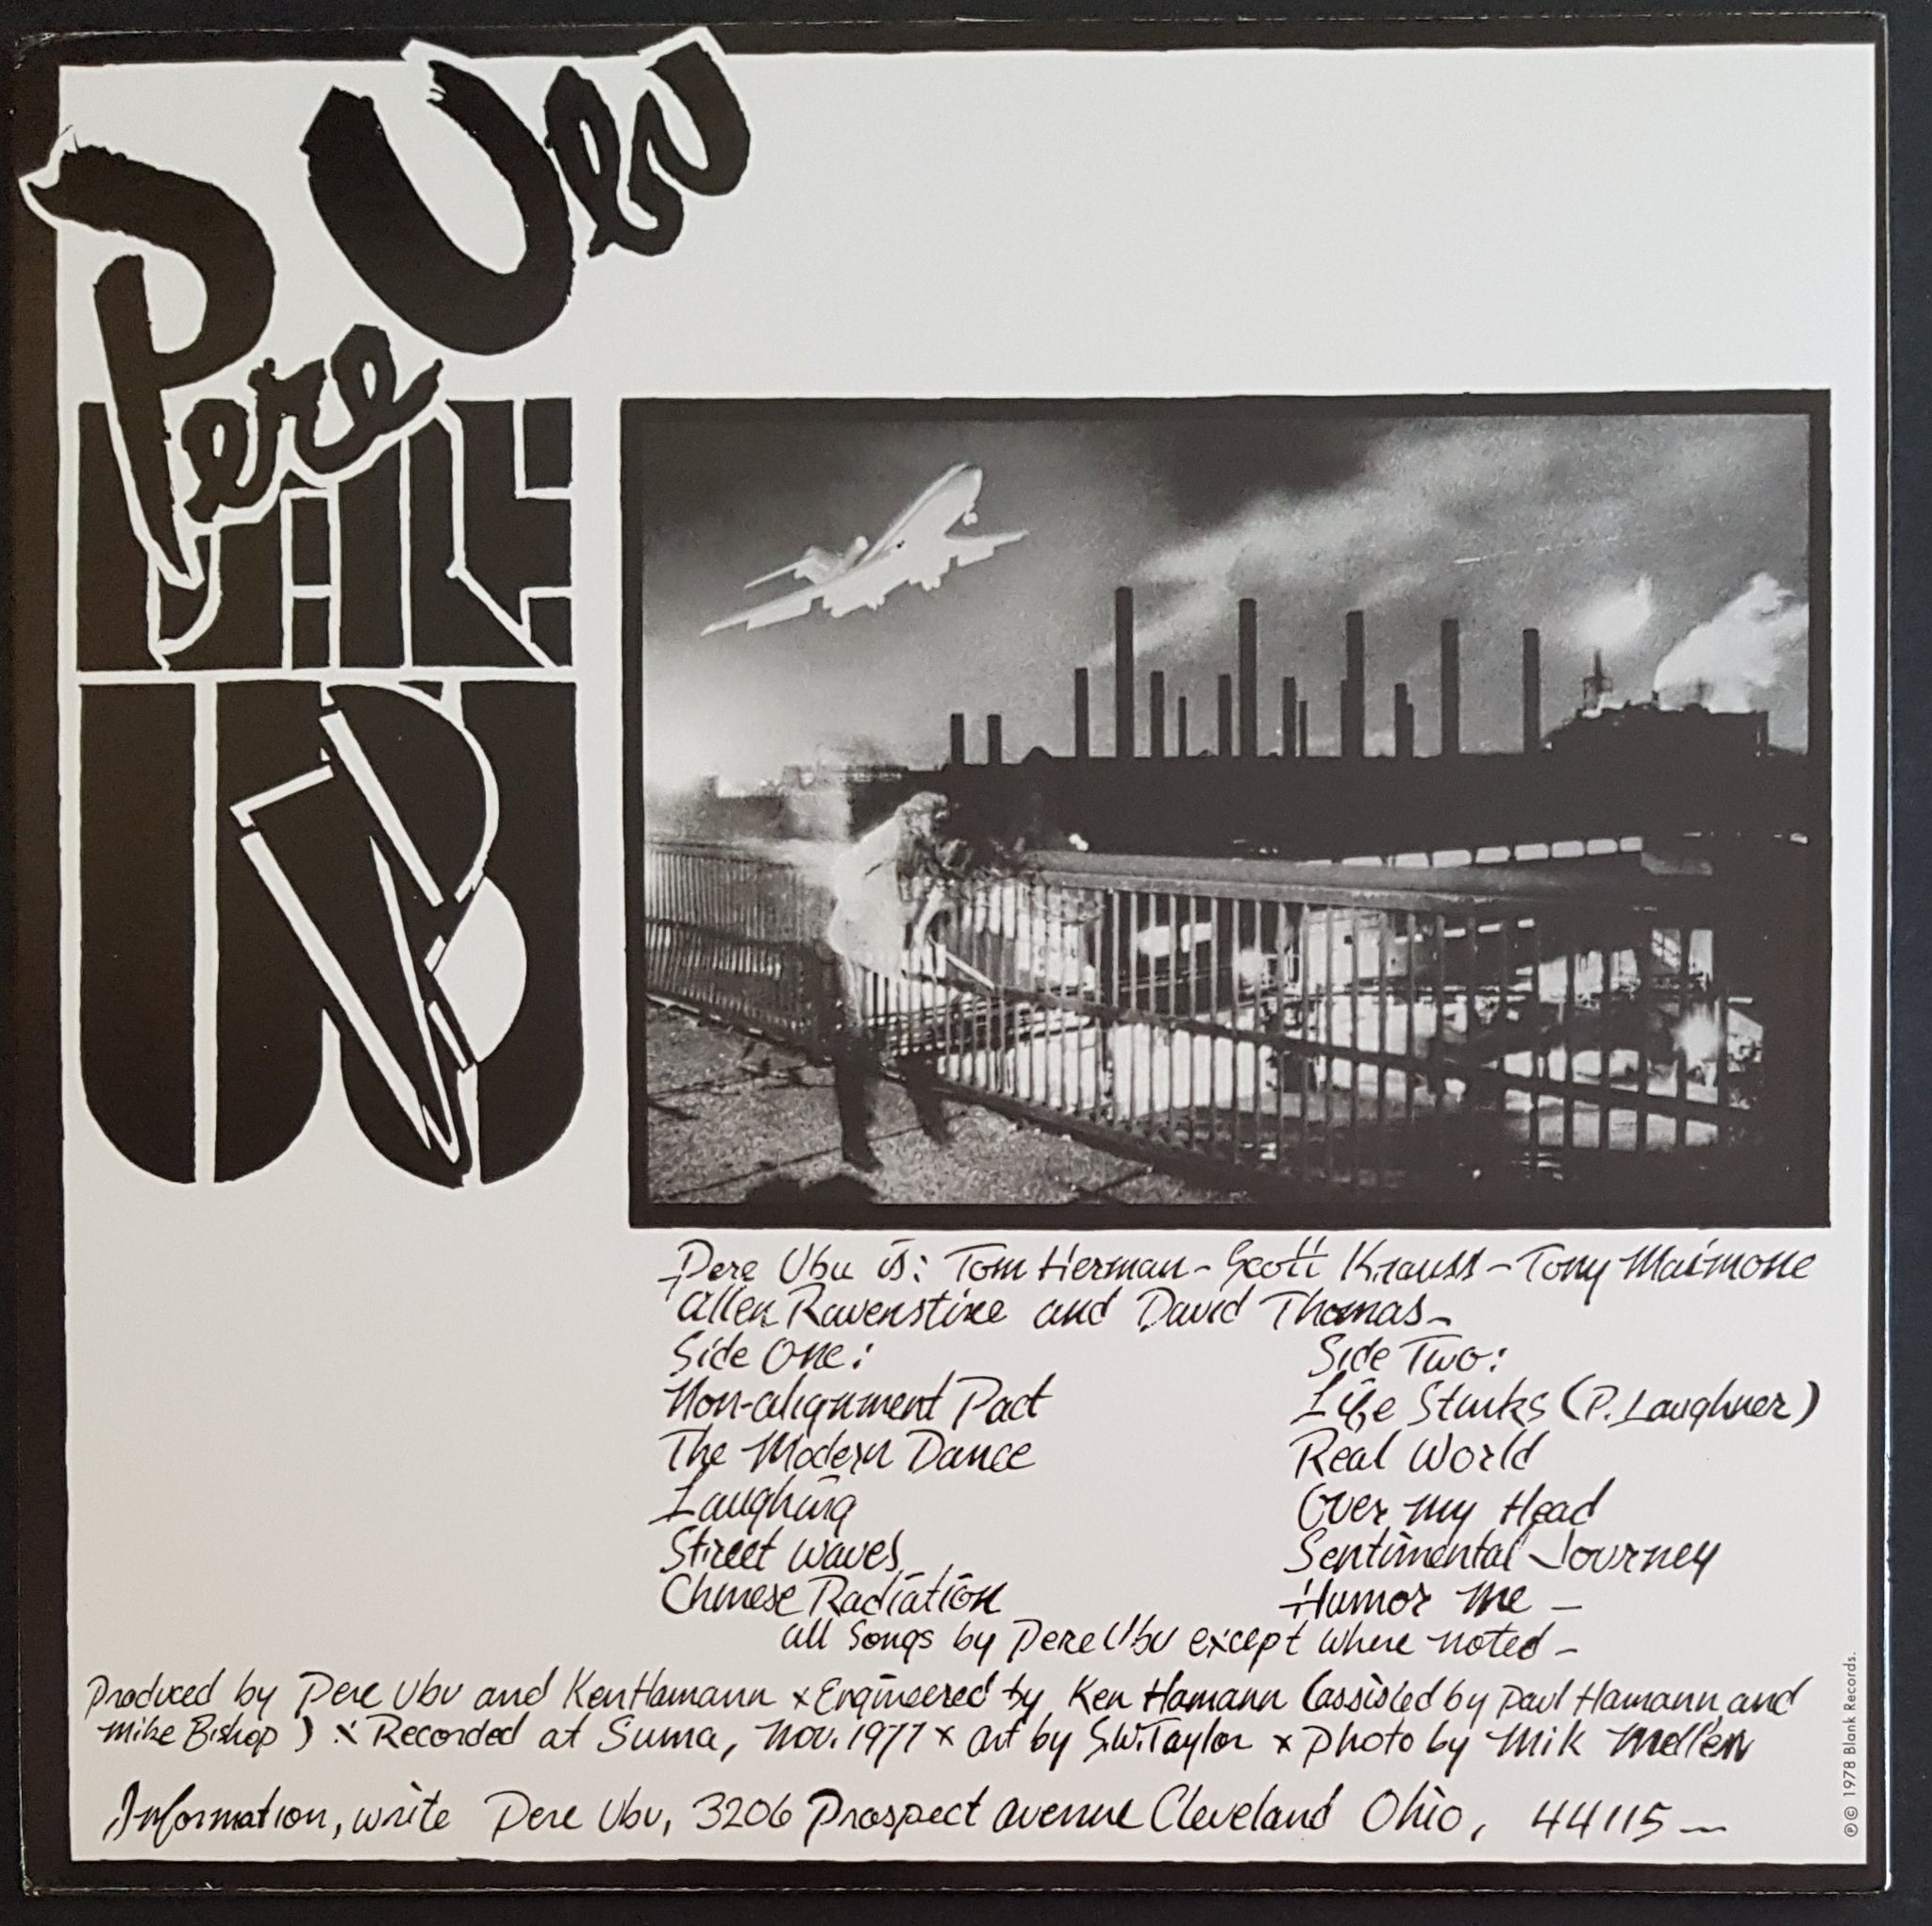 Pere Ubu
Pere Ubu is: Tom Herman - Scott Krauss - Tony Maimone
Allen Ravenstine and David Thomas -
Side One:
Non-alignment Pact
The Modern Dance
Laughing
Street Waves
Chinese Radiation
Side Two:
Life Stinks (P. Laughner)
Real World
Over my Head
Sentimental Journey
Humor Me -
all songs by Pere Ubu except where noted -
Produced by Pere Ubu and Ken Hamann x Engineered by Ken Hamann (assisted by Paul Hamann and
Mike Bishop) x Recorded at Suma, Nov. 1977 x Art by S.W. Taylor x Photo by Mik Mellen
Information, write Pere Ubu, 3206 Prospect avenue Cleveland Ohio, 44115 -
℗© 1978 Blank Records.